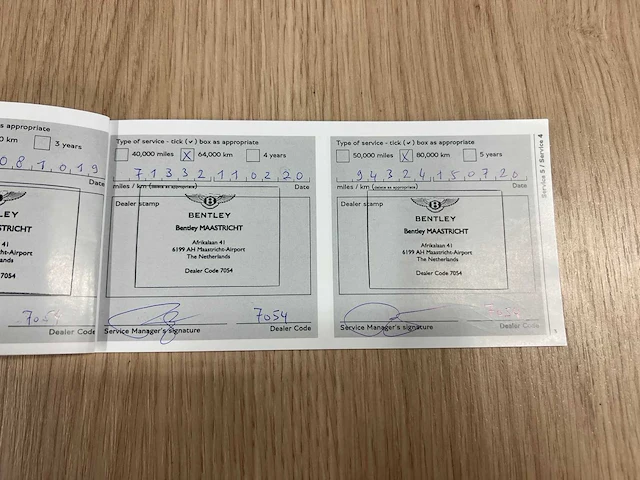 s appropriate
0 km 3 years
081019
Date
41
t-Airport
ds
7054
7054
Dealer Code
Type of service - tick (✓) box as appropriate
40,000 miles X 64,000 km 4 years
71332110220
miles / km (delete as appropriate) Date
Dealer stamp
BENTLEY
Bentley MAASTRICHT
Afrikalaan 41
6199 AH Maastricht-Airport
The Netherlands
Dealer Code 7054
7054
Service Manager's signature Dealer Code
Type of service - tick (✓) box as appropriate
50,000 miles X 80,000 km 5 years
94324150720
miles / km (delete as appropriate) Date
Dealer stamp
BENTLEY
Bentley MAASTRICHT
Afrikalaan 41
6199 AH Maastricht-Airport
The Netherlands
Dealer Code 7054
7054
Service Manager's signature Dealer Code
Service 5 / Service 4